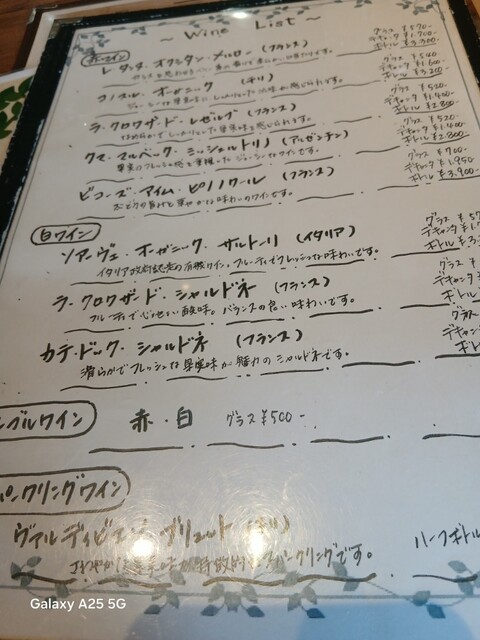 ~ Wine List ~
赤ワイン
レ・タンヌ・オクシタン・メルロー (フランス)
グラス ¥570-
デキャンタ ¥1,900-
ボトル ¥3,300-
コノスル・オーガニック (チリ)
グラス ¥540
デキャンタ ¥1,600-
ボトル ¥3,200-
ラ・クロワザード・レゼルブ (フランス)
グラス ¥520-
デキャンタ ¥1,400-
ボトル ¥2,800-
クマ・マルベック・ミッシェルトリノ (アルゼンチン)
グラス ¥520-
デキャンタ ¥1,400-
ボトル ¥2,800-
ビコーズ・アイム・ピノノワール (フランス)
グラス ¥700-
デキャンタ ¥1,950
ボトル ¥3,900-
ぶどうの旨みと華やかな味わいのワインです。
白ワイン
ソアーヴェ・オーガニック・サルトーリ (イタリア)
グラス
デキャンタ
ボトル
イタリア政府認定の有機ワイン。フルーティでフレッシュな味わいです。
ラ・クロワザード・シャルドネ (フランス)
グラス
デキャンタ
ボトル
フルーティで心地よい酸味。バランスの良い味わいです。
カテ・ドック・シャルドネ (フランス)
グラス
デキャンタ
ボト
滑らかでフレッシュな果実味が魅力のシャルドネです。
ンブルワイン
赤・白 グラス¥500-
パークリングワイン
ヴァルディビエソ・ブリュット (チリ)
ハーフボトル
さわやかな果実味が特徴的なスパークリングです。
Galaxy A25 5G